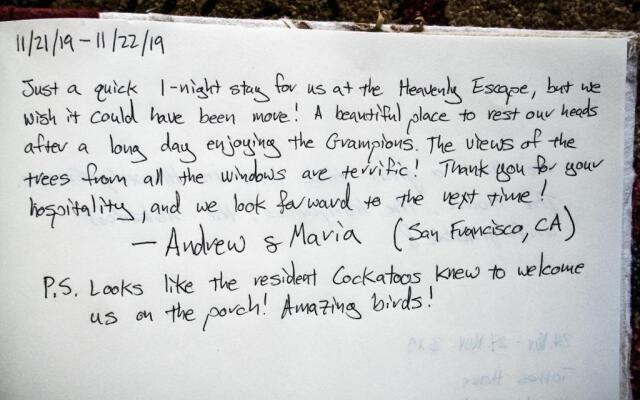 11/21/19 - 11/22/19
Just a quick 1-night stay for us at the Heavenly Escape, but we
wish it could have been more! A beautiful place to rest our heads
after a long day enjoying the Grampions. The views of the
trees from all the windows are terrific! Thank you for your
hospitality, and we look forward to the next time!
— Andrew & Maria (San Francisco, CA)
P.S. Looks like the resident Cockatoos knew to welcome
us on the porch! Amazing birds!